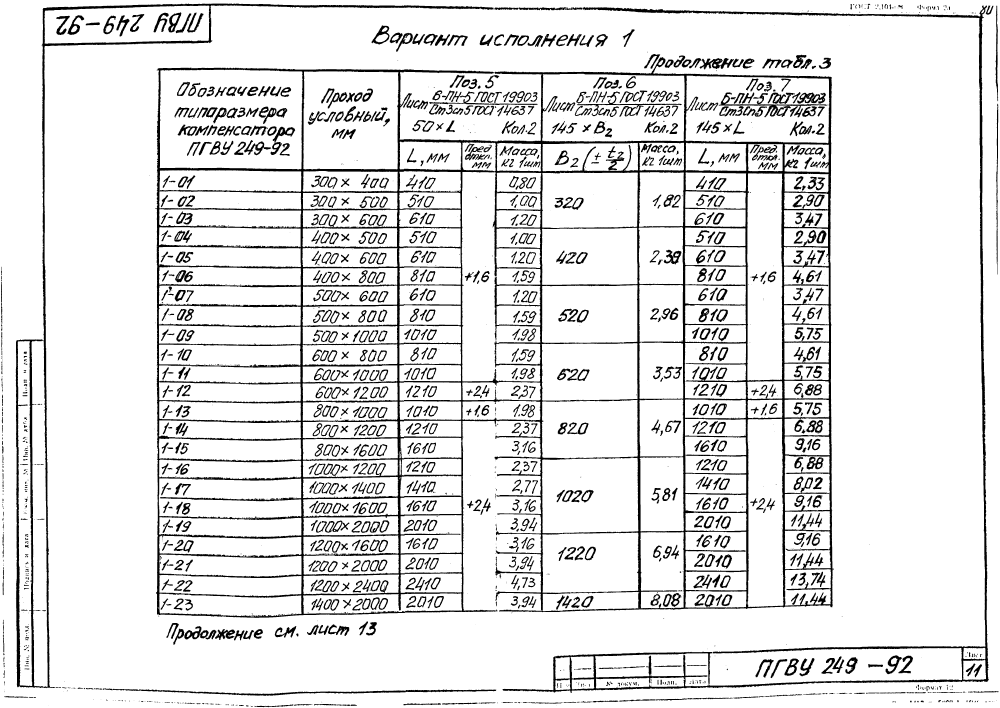 ГОСТ 2.104-68 Формат 2а
80
ПГВУ 249-92
Вариант исполнения 1
Продолжение табл. 3
Обозначение типаразмера компенсатора ПГВУ 249-92
Проход условный, мм
Поз. 5
Лист Б-ПН-5 ГОСТ 19903 / Ст3сп5 ГОСТ 14637
50×L Кол. 2
Поз. 6
Лист Б-ПН-5 ГОСТ 19903 / Ст3сп5 ГОСТ 14637
145×B2 Кол. 2
Поз. 7
Лист Б-ПН-5 ГОСТ 19903 / Ст3сп5 ГОСТ 14637
145×L Кол. 2
L, мм Пред. откл. мм Масса, кг 1шт B2 (± t2/2) Масса, кг 1шт L, мм Пред. откл. мм Масса, кг 1шт
1-01 300×400 410 0,80 410 2,33
1-02 300×500 510 1,00 320 1,82 510 2,90
1-03 300×600 610 1,20 610 3,47
1-04 400×500 510 1,00 510 2,90
1-05 400×600 610 1,20 420 2,39 610 3,47
1-06 400×800 810 +1,6 1,59 810 +1,6 4,61
1-07 500×600 610 1,20 610 3,47
1-08 500×800 810 1,59 520 2,96 810 4,61
1-09 500×1000 1010 1,98 1010 5,75
1-10 600×800 810 1,59 810 4,61
1-11 600×1000 1010 1,98 620 3,53 1010 5,75
1-12 600×1200 1210 +2,4 2,37 1210 +2,4 6,88
1-13 800×1000 1010 +1,6 1,98 1010 +1,6 5,75
1-14 800×1200 1210 2,37 820 4,67 1210 6,88
1-15 800×1600 1610 3,16 1610 9,16
1-16 1000×1200 1210 2,37 1210 6,88
1-17 1000×1400 1410 2,77 1020 5,81 1410 8,02
1-18 1000×1600 1610 +2,4 3,16 1610 +2,4 9,16
1-19 1000×2000 2010 3,94 2010 11,44
1-20 1200×1600 1610 3,16 1610 9,16
1-21 1200×2000 2010 3,94 1220 6,94 2010 11,44
1-22 1200×2400 2410 4,73 2410 13,74
1-23 1400×2000 2010 3,94 1420 8,08 2010 11,44
Продолжение см. лист 13
ПГВУ 249-92
Лист
11
№ докум. Подп. Дата
Формат 12